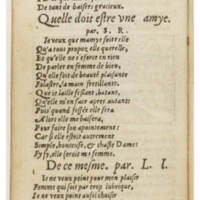 De tant de baisers gracieux.
Quelle doit estre vne amye.
par. S. R.
Ie veux que mamye soit telle
Qu'a tous propos elle querelle,
Et qu'elle ne s'efforce en rien
De parler en femme de bien,
Qu'elle soit de beauté plaisante
Folastre, à la main fretillante:
Que ie laisse faisant, & tant,
Qu'elle m'en face autant
Puis quand faschée elle sera
Alors elle me baisera,
Pour faire son apointement:
Car si elle estoit autrement
Simple, honteuse, & chaste Dame:
Fy fy, elle seroit ma femme.
De ce mesme. par L. I.
Ie ne veux point pour mon plaisir
Femme qui soit par trop lubrique,
Ie ne veux point aussi choisir